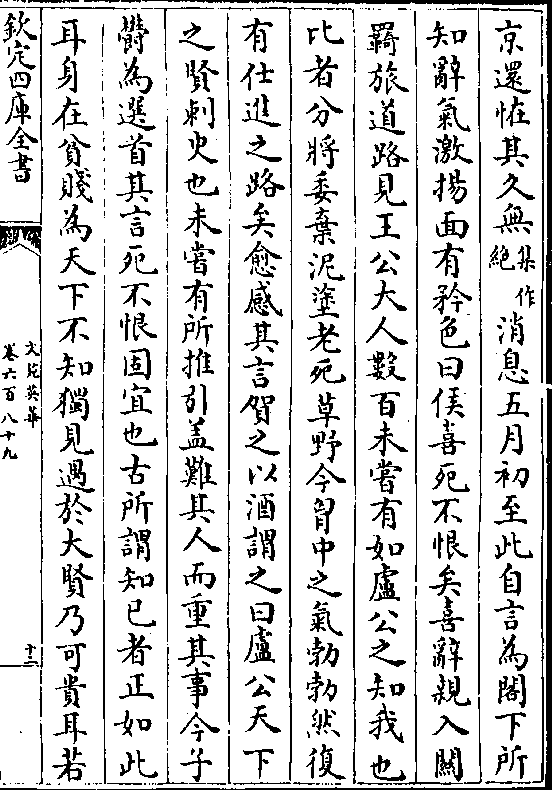 京還怪其久無集作絶消息五月初至此自言為閣下所
知辭氣激揚面有矜色曰侯喜死不恨矣喜辭親入關
羇旅道路見王公大人數百未嘗有如盧公之知我也
比者分將委棄泥塗老死草野今胷中之氣勃勃然復
有仕進之路矣愈感其言賀之以酒謂之曰盧公天下
之賢刺史也未嘗有所推引盖難其人而重其事今子
欝為選首其言死不恨固宜也古所謂知已者正如此
耳身在貧賤為天下不知獨見遇於大賢乃可貴耳若
欽定四庫全書
文苑英華
卷六百八十九
十二